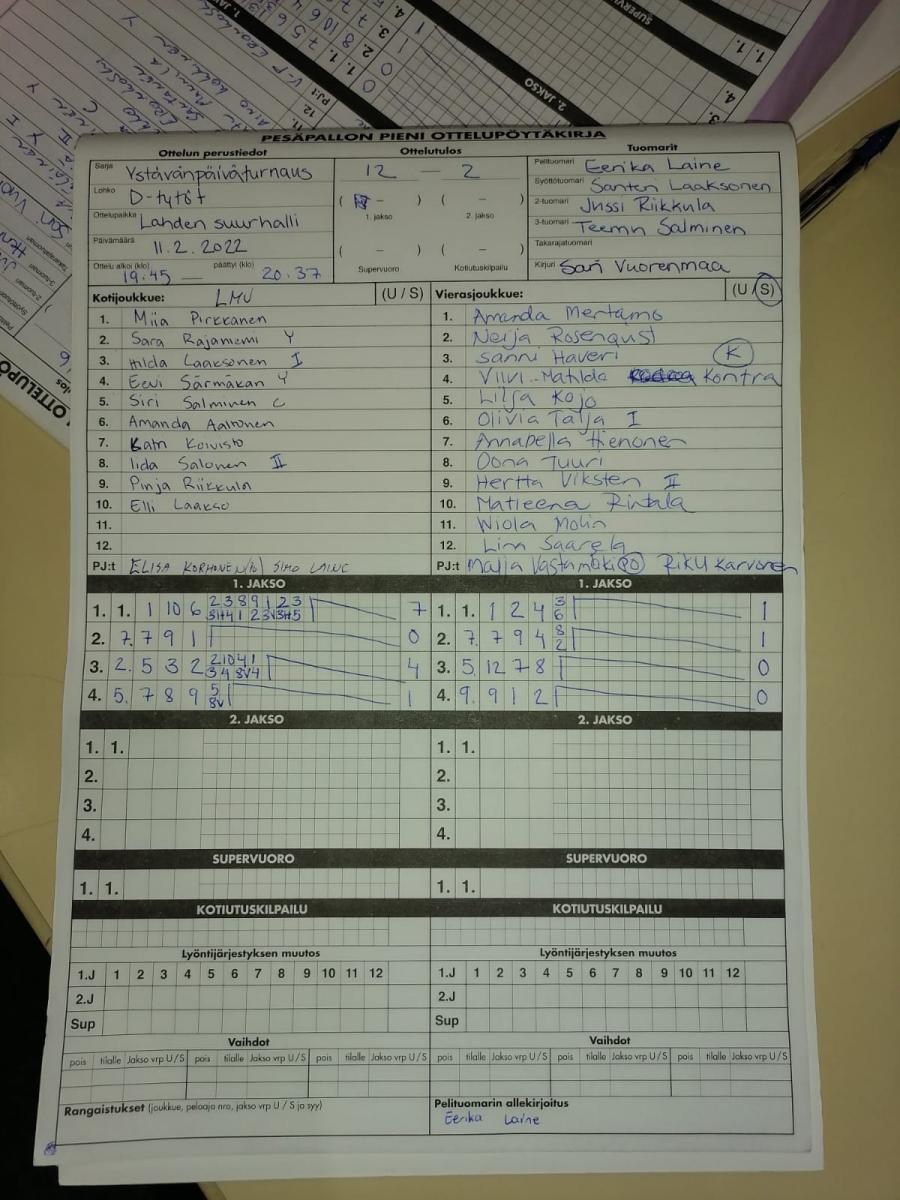 PESÄPALLON PIENI OTTELUPÖYTÄKIRJA
Ottelun perustiedot Ottelutulos Tuomarit
Sarja Ystävänpäiväturnaus
Lohko D-tytöt
Ottelupaikka Lahden suurhalli
Päivämäärä 11.2.2022
Ottelu alkoi (klo) päättyi (klo)
19.45 — 20.37
12 — 2
( – ) ( – )
1. jakso 2. jakso
( – ) ( – )
Supervuoro Kotiutuskilpailu
Pelituomari Eerika Laine
Syöttötuomari Santeri Laaksonen
2-tuomari Jussi Riikkula
3-tuomari Teemu Salminen
Takarajatuomari
Kirjuri Sari Vuorenmaa
Kotijoukkue: LMV (U / S)
1. Miia Pirkkanen
2. Sara Rajaniemi Y
3. Hilda Laaksonen I
4. Eevi Särmäkari Y
5. Siri Salminen C
6. Amanda Aaltonen
7. Katri Koivisto
8. Iida Salonen II
9. Pinja Riikkula
10. Elli Laakso
11.
12.
PJ:t ELISA KORHONEN SIMO LAINE
Vierasjoukkue: (U / S)
1. Amanda Mertamo
2. Neija Rosenqust
3. Sanni Haveri K
4. Viivi-Matilda Kontra
5. Lilja Kojo
6. Olivia Talja I
7. Annabella Hienonen
8. Oona Tuuri
9. Hertta Viksten II
10. Matleena Rintala
11. Wiola Molin
12. Linn Saarela
PJ:t Maija Vastamäki PO Riku Karvonen
1. JAKSO
1. 1. 1 10 6 7
2. 7. 7 9 1 0
3. 2. 5 3 2 4
4. 5. 7 8 9 5 8V 1
1. JAKSO
1. 1. 1 2 4 3 6 1
2. 7. 7 9 4 8 2 1
3. 5. 12 7 8 0
4. 9. 9 1 2 0
2. JAKSO
1. 1.
2.
3.
4.
2. JAKSO
1. 1.
2.
3.
4.
SUPERVUORO
1. 1.
SUPERVUORO
1. 1.
KOTIUTUSKILPAILU
KOTIUTUSKILPAILU
Lyöntijärjestyksen muutos
1.J 1 2 3 4 5 6 7 8 9 10 11 12
2.J
Sup
Lyöntijärjestyksen muutos
1.J 1 2 3 4 5 6 7 8 9 10 11 12
2.J
Sup
Vaihdot
pois tilalle Jakso vrp U / S pois tilalle Jakso vrp U / S pois tilalle Jakso vrp U / S
Vaihdot
pois tilalle Jakso vrp U / S pois tilalle Jakso vrp U / S pois tilalle Jakso vrp U / S
Rangaistukset (joukkue, pelaaja nro, jakso vrp U / S ja syy)
Pelituomarin allekirjoitus
Eerika Laine